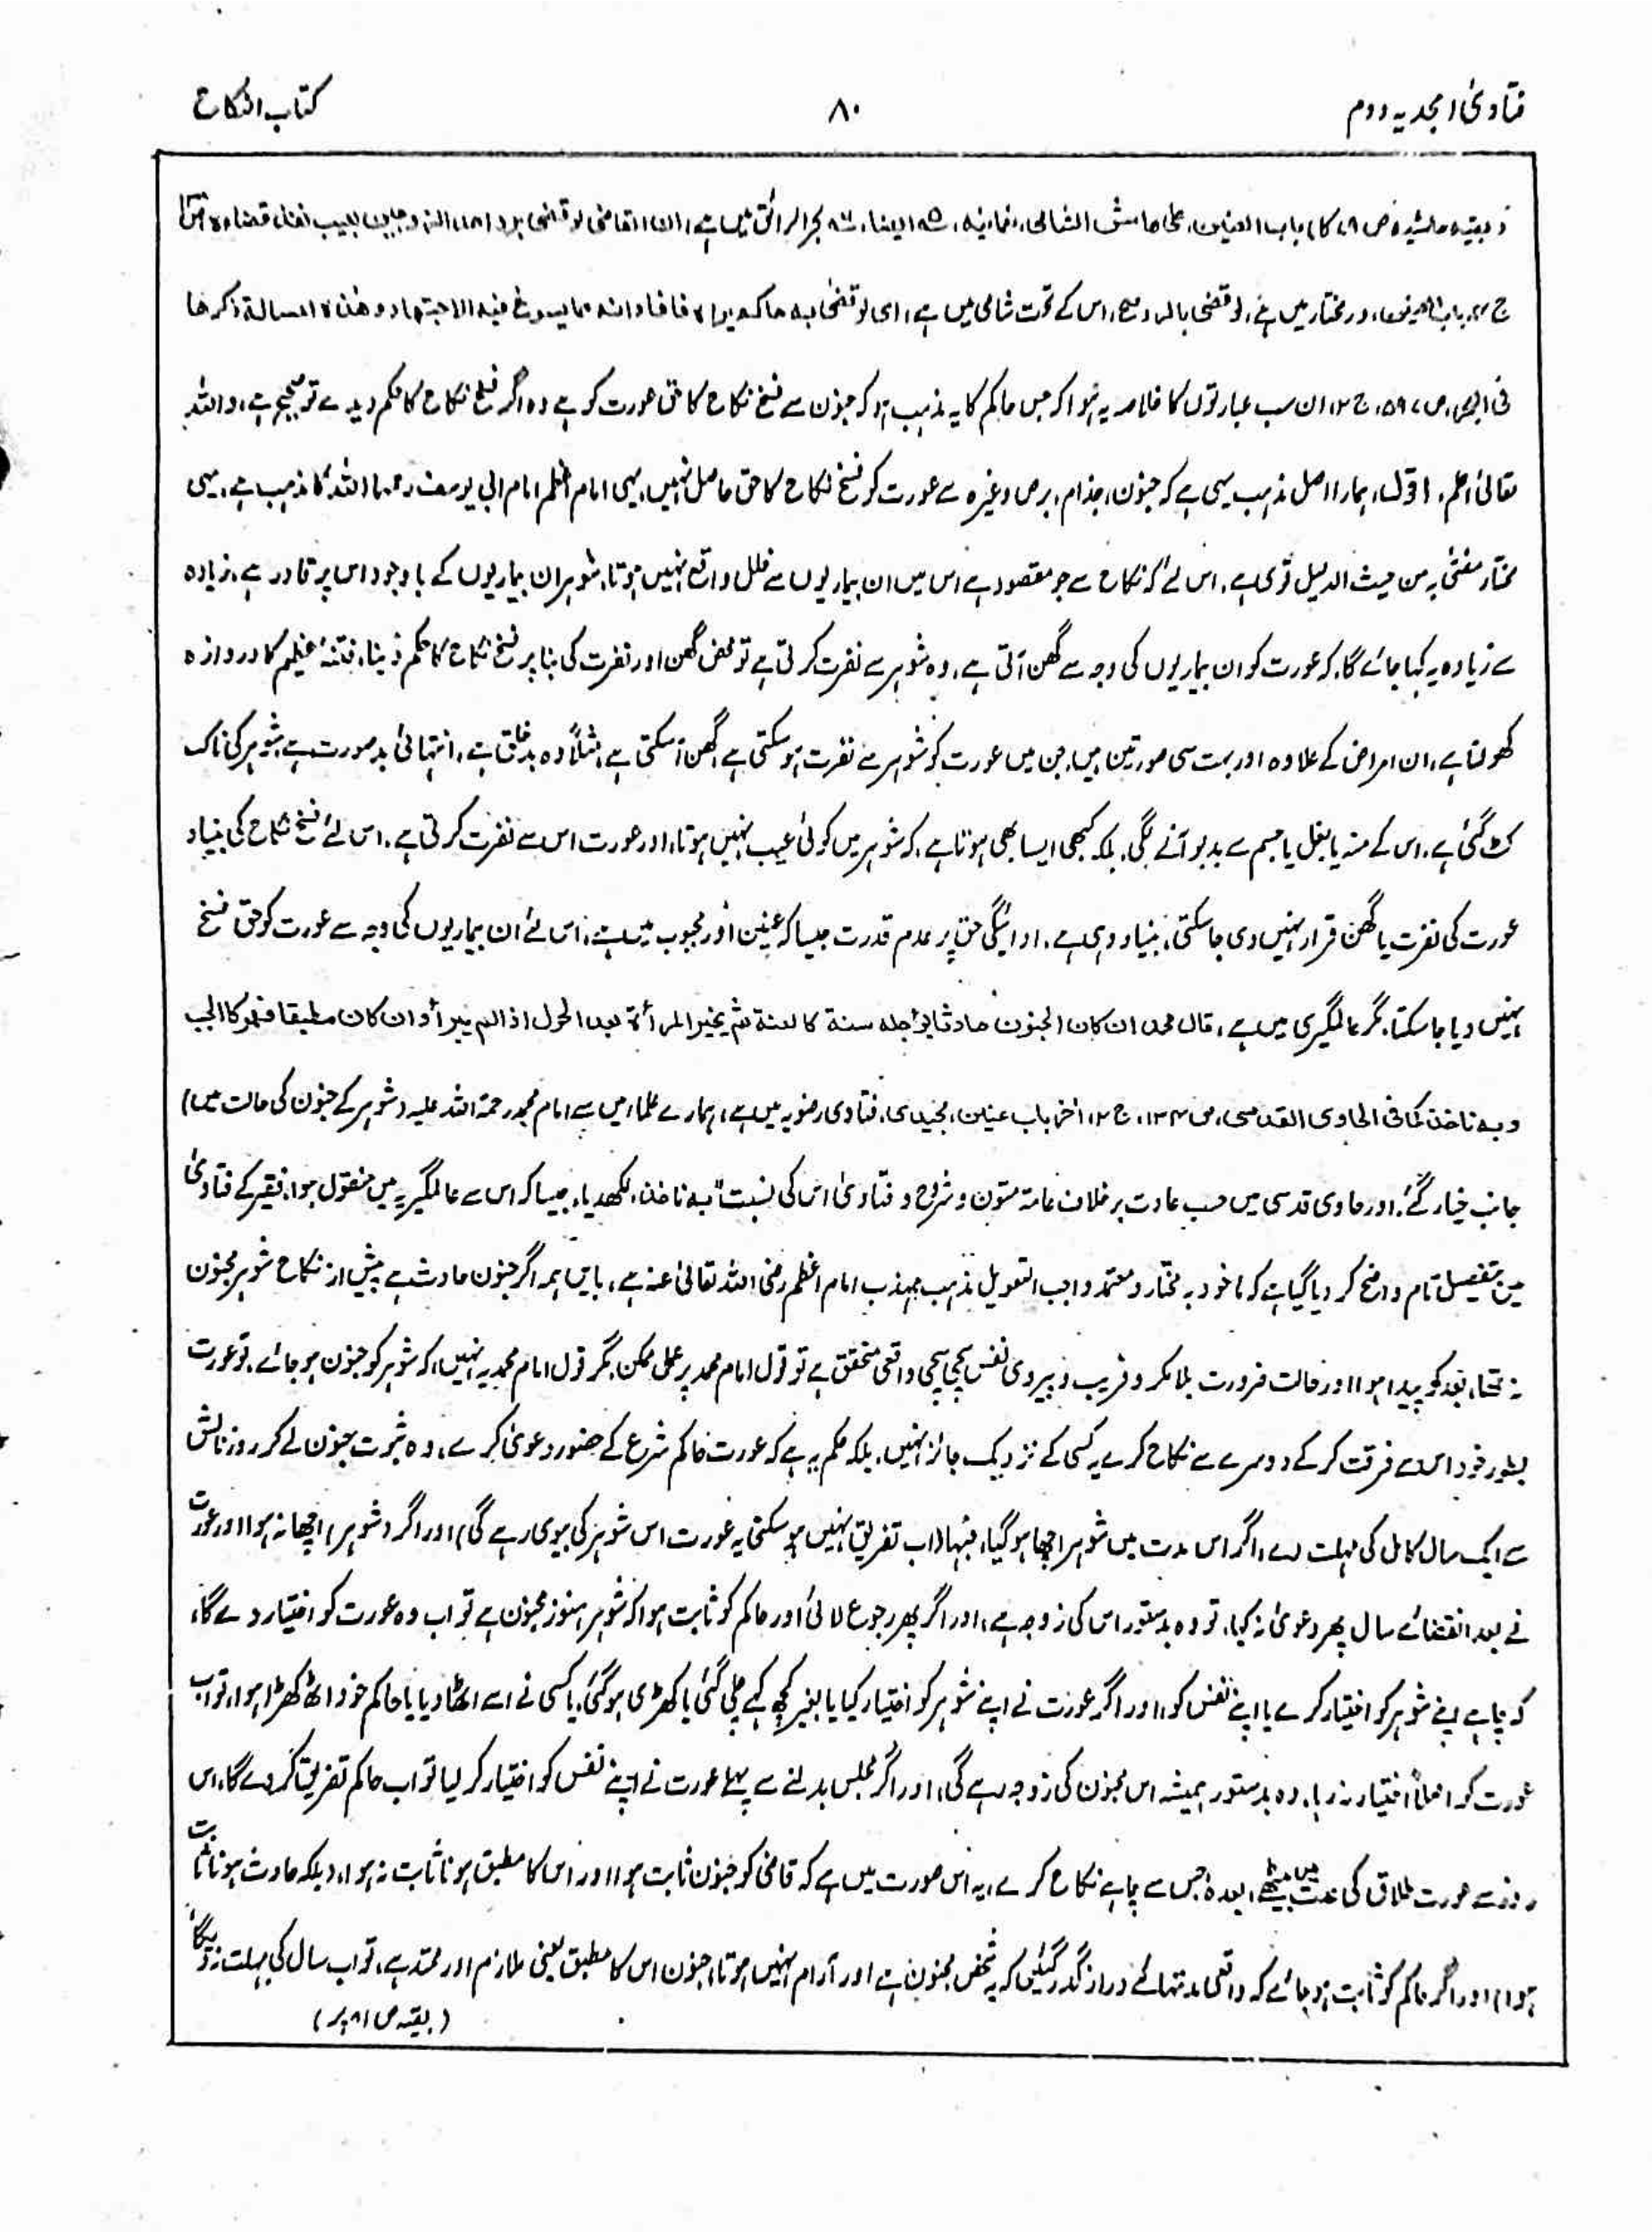 فتاویٰ امجدیہ دوم ۸۰ کتاب النکاح
(بقیہ حاشیہ ص ۷۹ کا) باب العنین، علی ہامش الشامی، نعمانیہ، ایضا، بحر الرائق میں ہے، ان القاضی لو قضی برد احد الزوجین بعیب نفذ قضاءہ
ج ۴، باب، در مختار میں ہے، لو قضی بالرد صح، اس کے تحت شامی میں ہے، ای لو قضیٰ بہ حاکم یراہ فافاد انہ مما یسوغ فیہ الاجتہاد وھذہ المسالۃ ذکرھا
فی البحر، ص ۵۹۷، ج ۲، ان سب عبارتوں کا خلاصہ یہ ہوا کہ جس حاکم کا یہ مذہب ہو کہ جنون سے فسخ نکاح کا حق عورت کو ہے وہ اگر فسخ نکاح کا حکم دیدے تو صحیح ہے، واللہ
تعالیٰ اعلم، اقول، ہمارا اصل مذہب یہی ہے کہ جنون، جذام، برص وغیرہ سے عورت کو فسخ نکاح کا حق حاصل نہیں، یہی امام اعظم امام ابی یوسف رحمہما اللہ کا مذہب ہے، یہی
مختار مفتٰی بہ من حیث الدلیل قوی ہے، اس لئے کہ نکاح سے جو مقصود ہے اس میں ان بیماریوں سے خلل واقع نہیں ہوتا، شوہر ان بیماریوں کے باوجود اس پر قادر ہے، زیادہ
سے زیادہ یہ کہا جائے گا، کہ عورت کو ان بیماریوں کی وجہ سے گھن آتی ہے، وہ شوہر سے نفرت کرتی ہے تو محض گھن اور نفرت کی بنا پر فسخ نکاح کا حکم دینا، فتنۂ عظیم کا دروازہ
کھولنا ہے، ان امراض کے علاوہ اور بہت سی صورتیں ہیں، جن میں عورت کو شوہر سے نفرت ہو سکتی ہے گھن آسکتی ہے، مثلاً وہ بدخلق ہے، انتہائی بدصورت ہے، شوہر کی ناک
کٹ گئی ہے، اس کے منہ یا بغل یا جسم سے بدبو آنے لگی، بلکہ کبھی ایسا بھی ہوتا ہے، کہ شوہر میں کوئی عیب نہیں ہوتا، اور عورت اس سے نفرت کرتی ہے، اس لئے فسخ نکاح کی بنیاد
عورت کی نفرت یا گھن قرار نہیں دی جاسکتی، بنیاد وہی ہے، ادائیگی حق پر عدم قدرت جیسا کہ عنین اور مجبوب میں ہے، اس لئے ان بیماریوں کی وجہ سے عورت کو حق فسخ
نہیں دیا جاسکتا، مگر عالمگیری میں ہے، قال محمد ان کان الجنون حادثا یؤجلہ سنۃ کالعنۃ ثم یخیر المرأۃ بعد الحول اذا لم یبرأ وان کان مطبقا فہو کالجب
وبہ ناخذ کما فی الحاوی القدسی، ص ۱۳۴، ج ۲، اٰخر باب عنین، مجیدی، فتاوی رضویہ میں ہے، ہمارے علماء میں سے امام محمد رحمۃ اللہ علیہ (شوہر کے جنون کی حالت میں)
جانب خیار گئے، اور حاوی قدسی میں حسب عادت بر خلاف عامۃ متون و شروح و فتاویٰ اس کی نسبت "بہ ناخذ" لکھدیا، جیسا کہ اس سے عالمگیریہ میں منقول ہوا، فقیر کے فتاویٰ
میں بتفصیل تام واضح کر دیا گیا ہے کہ ماخوذ بہ مختار و معتمد واجب التعویل مذہب مہذب امام اعظم رضی اللہ تعالیٰ عنہ ہے، بایں ہمہ اگر جنون حادث ہے پیش از نکاح شوہر مجنون
نہ تھا، بعد کو پیدا ہوا اور حالت ضرورت بلا مکر و فریب و پیروی نفس سچی سچی واقعی متحقق ہے تو قول امام محمد پر عمل ممکن، مگر قول امام محمد یہ نہیں، کہ شوہر کو جنون ہو جائے، تو عورت
بطور خود اس سے فرقت کر کے دوسرے سے نکاح کرے یہ کسی کے نزدیک جائز نہیں، بلکہ حکم یہ ہے کہ عورت حاکم شرع کے حضور دعویٰ کرے، وہ ثبوت جنون لے کر روز نالش
سے ایک سال کامل کی مہلت دے، اگر اس مدت میں شوہر اچھا ہو گیا، فبہا (اب تفریق نہیں ہو سکتی یہ عورت اس شوہر کی بیوی رہے گی) اور اگر (شوہر) اچھا نہ ہوا اور عورت
نے بعد انقضائے سال پھر دعویٰ نہ کیا، تو وہ بدستور اس کی زوجہ ہے، اور اگر پھر رجوع لائی اور حاکم کو ثابت ہوا کہ شوہر ہنوز مجنون ہے تو اب وہ عورت کو اختیار دے گا،
کہ چاہے اپنے شوہر کو اختیار کرے یا اپنے نفس کو، اور اگر عورت نے اپنے شوہر کو اختیار کیا یا بغیر کچھ کہے چلی گئی یا کھڑی ہوگئی، یا کسی نے اسے اٹھا دیا یا حاکم خود اٹھ کھڑا ہوا، تو اب
عورت کو اصلاً اختیار نہ رہا، وہ بدستور ہمیشہ اس مجنون کی زوجہ رہے گی، اور اگر مجلس بدلنے سے پہلے عورت نے اپنے نفس کو اختیار کر لیا تو اب حاکم تفریق کر دے گا، اس
روز سے عورت طلاق کی عدت میں بیٹھے، بعدہٗ جس سے چاہے نکاح کرے، یہ اس صورت میں ہے کہ قاضی کو جنون ثابت ہوا اور اس کا مطبق ہونا ثابت نہ ہوا، (بلکہ حادث ہونا ثابت
ہوا) اور اگر حاکم کو ثابت ہو جائے کہ واقعی مدتہائے دراز گذر گئیں کہ یہ شخص مجنون ہے اور آرام نہیں ہوتا، جنون اس کا مطبق یعنی ملازم اور ممتد ہے، تو اب سال کی مہلت نہ دیگا
(بقیہ ص ۸۱ پر)